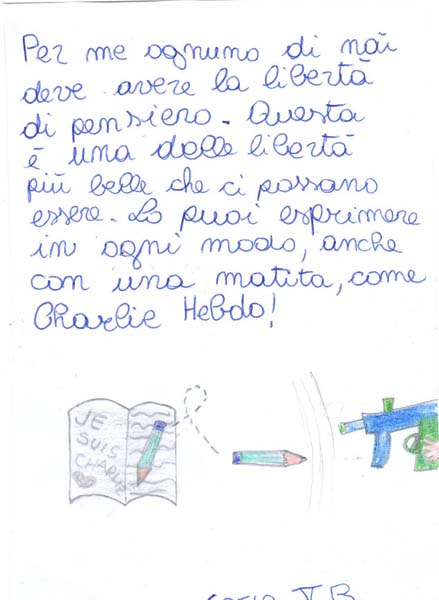 Per me ognuno di noi
deve avere la libertà
di pensiero. Questa
è una delle libertà
più belle che ci possano
essere. Lo puoi esprimere
in ogni modo, anche
con una matita, come
Charlie Hebdo!
JE
SUIS
CHARLIE
V B